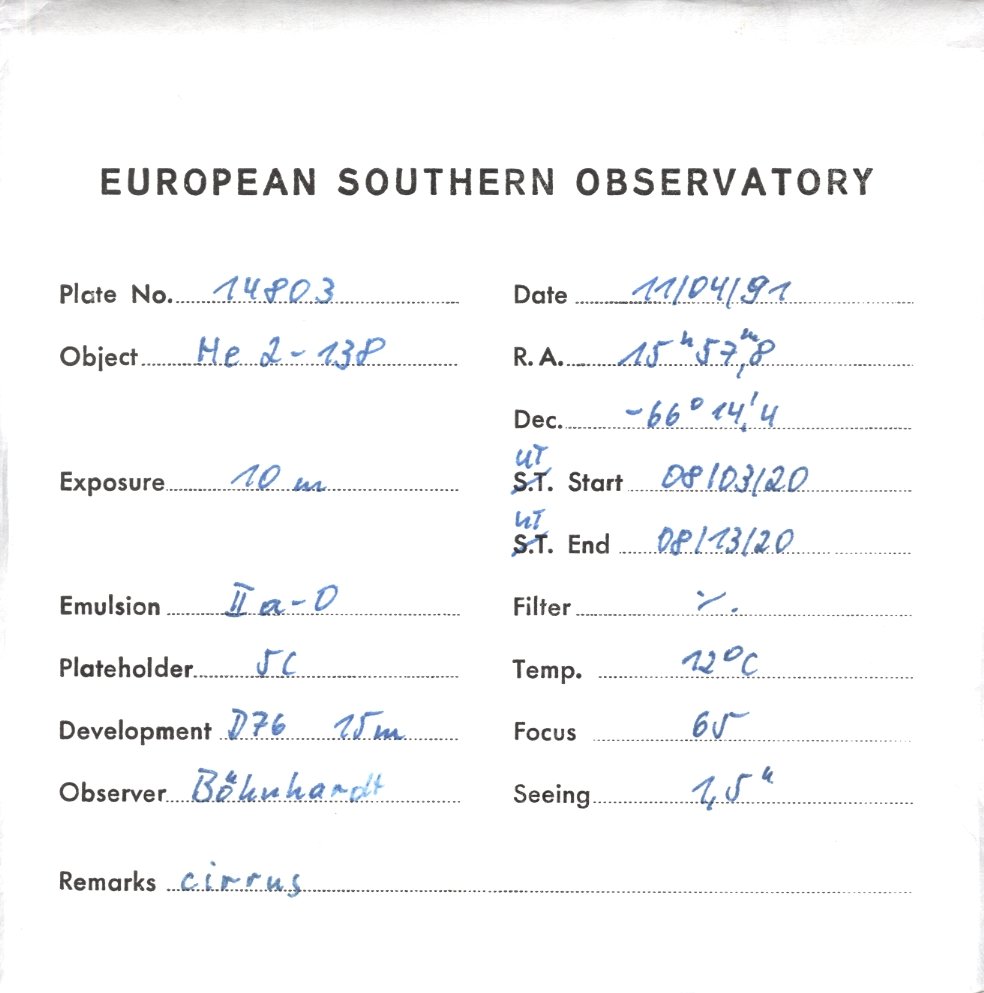 EUROPEAN SOUTHERN OBSERVATORY
Plate No. 14803 Date 11/04/91
Object He 2-138 R.A. 15ʰ57ᵐ,8
Dec. -66° 14,'4
UT UT
Exposure 10 m S.T. Start 08/03/20
S.T. End 08/13/20
Emulsion IIa-O Filter ·/.
Plateholder 5C Temp. 12°C
Development D76 15m Focus 65
Observer Böhnhardt Seeing 1,5"
Remarks cirrus